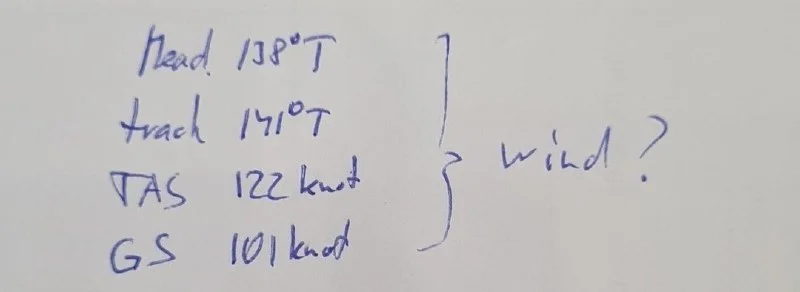 Head. 138°T
track 141°T
TAS 122 knot
GS 101 knot
wind?